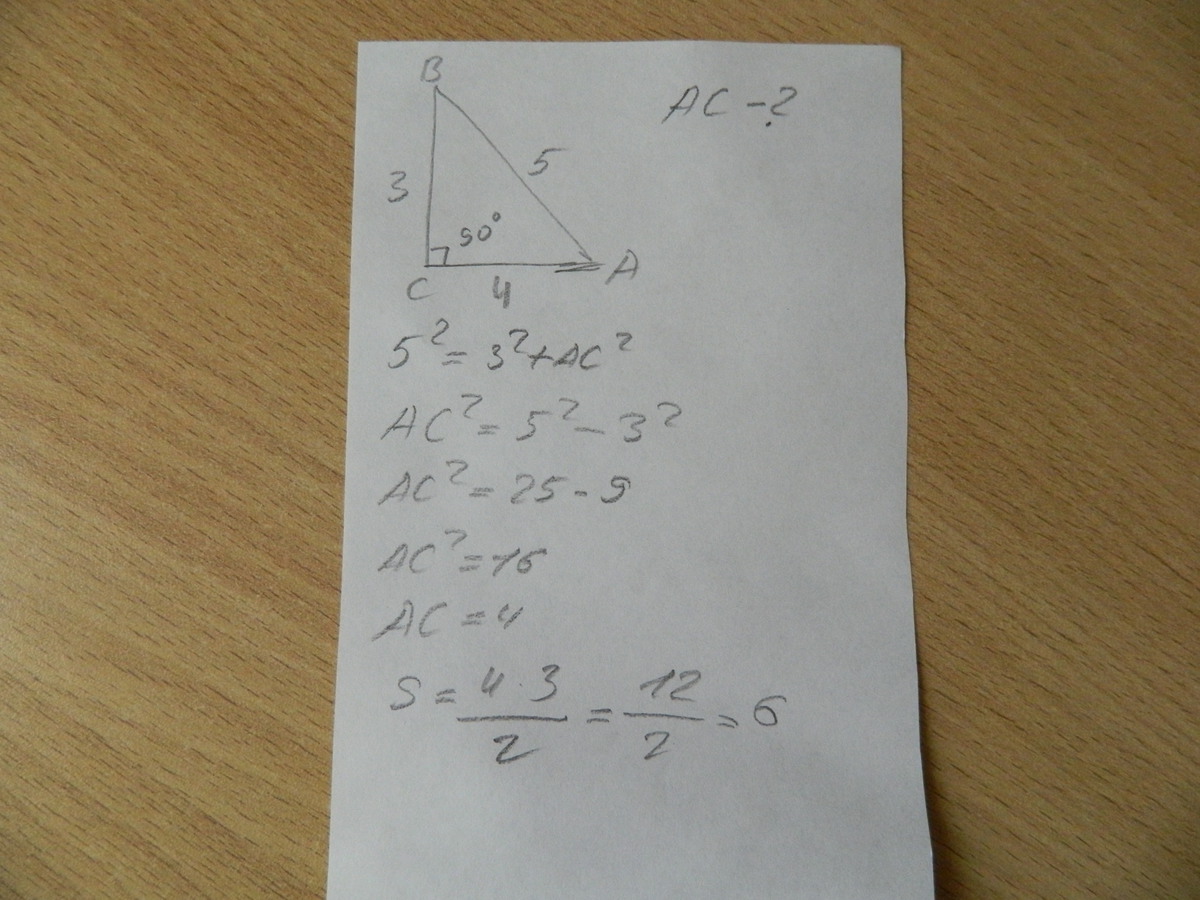 B
AC - ?
3
5
90°
C
4
A
5² = 3² + AC²
AC² = 5² - 3²
AC² = 25 - 9
AC² = 16
AC = 4
S = 4 · 3 / 2 = 12 / 2 = 6